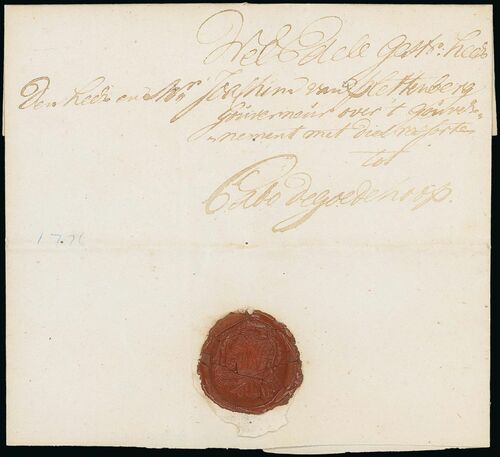 Wel Edele Gestr: Heer
Den Heer en Mr Joachim van Plettenberg
Gouverneur over 't gouver=
=nement met dies ressorten
tot
Cabo de goede hoop.
1776